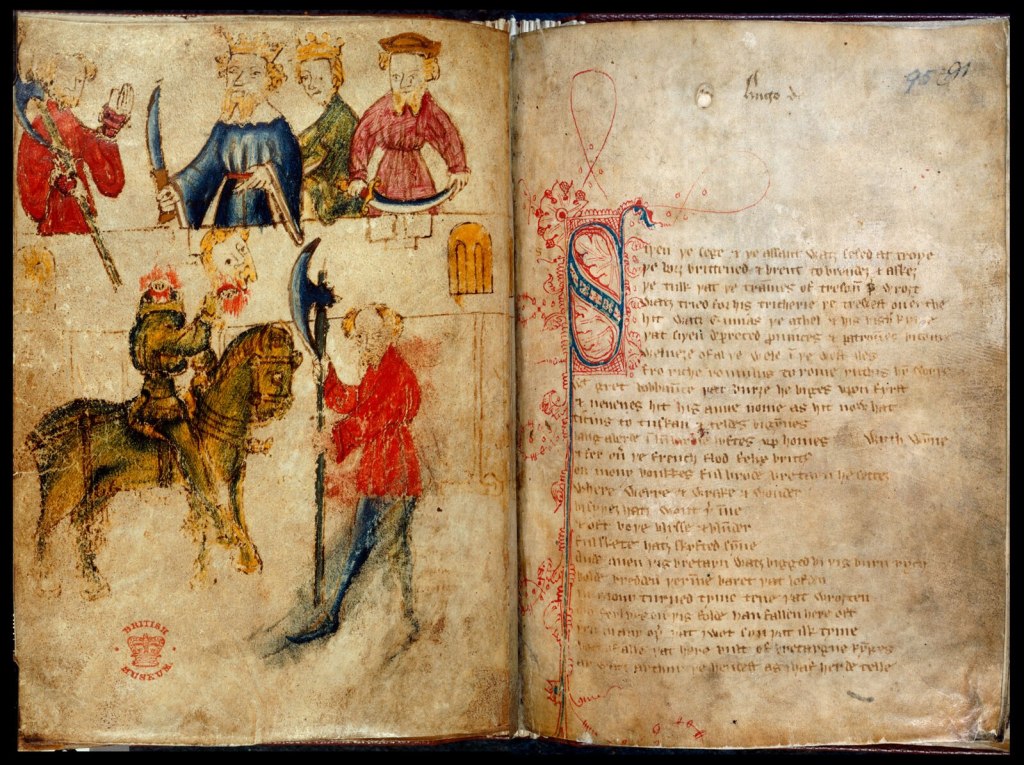 Hugo de
95 91
Siþen þe sege & þe assaut watz sesed at troye
þe borȝ brittened & brent to brondeȝ & askez
þe tulk þat þe trammes of tresoun þ wroȝt
watz tried for his tricherie þe trewest on erthe
hit watz ennias þe athel & his highe kynde
þat siþen depreced prouinces & patrounes bicome
welneȝe of al þe wele in þe west iles
fro riche romulus to rome ricchis hym swyþe
gret bobbaunce þat burȝe he biges vpon fyrst
& neuenes hit his aune nome as hit now hat
ticius to tuskan & teldes bigynnes
langaberde in lyftes vp homes wyth wynne
& fer ou þe french flod felix brutus
on mony bonkkes ful brode bretayn he settez
where werre & wrake & wonder
bi syþez hatz wont þinne
& oft boþe blysse & blunder
ful skete hatz skyfted synne
Ande quen þis bretayn watz bigged bi þis burn rych
bolde bredden þinne baret þat lofden
in mony turned tyme tene þat wroȝten
mo ferlyes on þis folde han fallen here oft
þen in any oþ þat I wot syn þat ilk tyme
bot of alle þat here bult of bretaygne kynges
ay watz arthur þe hendest as I haf herde telle
BRITISH
MUSEUM